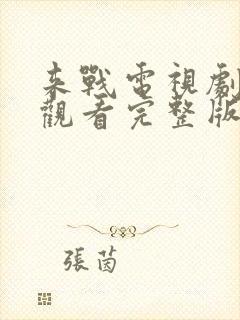 來戰電視劇
觀看完整版
張茵